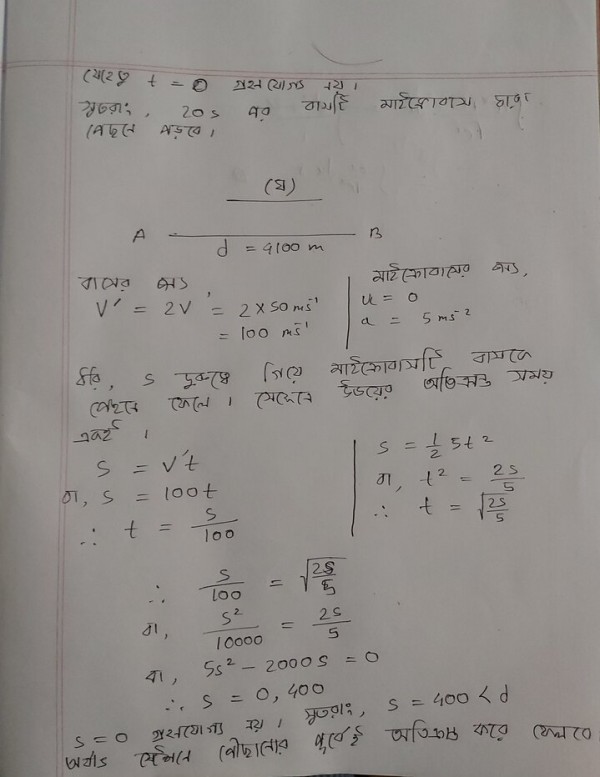 যেহেতু t = 0 গ্রহণযোগ্য নয়।
সুতরাং, 20s পর বাসটি মাইক্রোবাস দ্বারা
পেছনে পড়বে।
(ঘ)
A B
d = 4100 m
বাসের জন্য,
V' = 2V = 2 × 50 ms⁻¹
= 100 ms⁻¹
মাইক্রোবাসের জন্য,
u = 0
a = 5 ms⁻²
ধরি, s দূরত্বে গিয়ে মাইক্রোবাসটি বাসকে
পেছনে ফেলে। সেক্ষেত্রে উভয়ের অতিক্রান্ত সময়
একই।
s = V't
বা, s = 100t
∴ t = s/100
s = 1/2 5t²
বা, t² = 2s/5
∴ t = √(2s/5)
∴ s/100 = √(2s/5)
বা, s²/10000 = 2s/5
বা, 5s² − 2000s = 0
∴ s = 0, 400
s = 0 গ্রহণযোগ্য নয়। সুতরাং, s = 400 < d
অর্থাৎ স্টেশনে পৌঁছানোর পূর্বেই অতিক্রম করে ফেলবে।